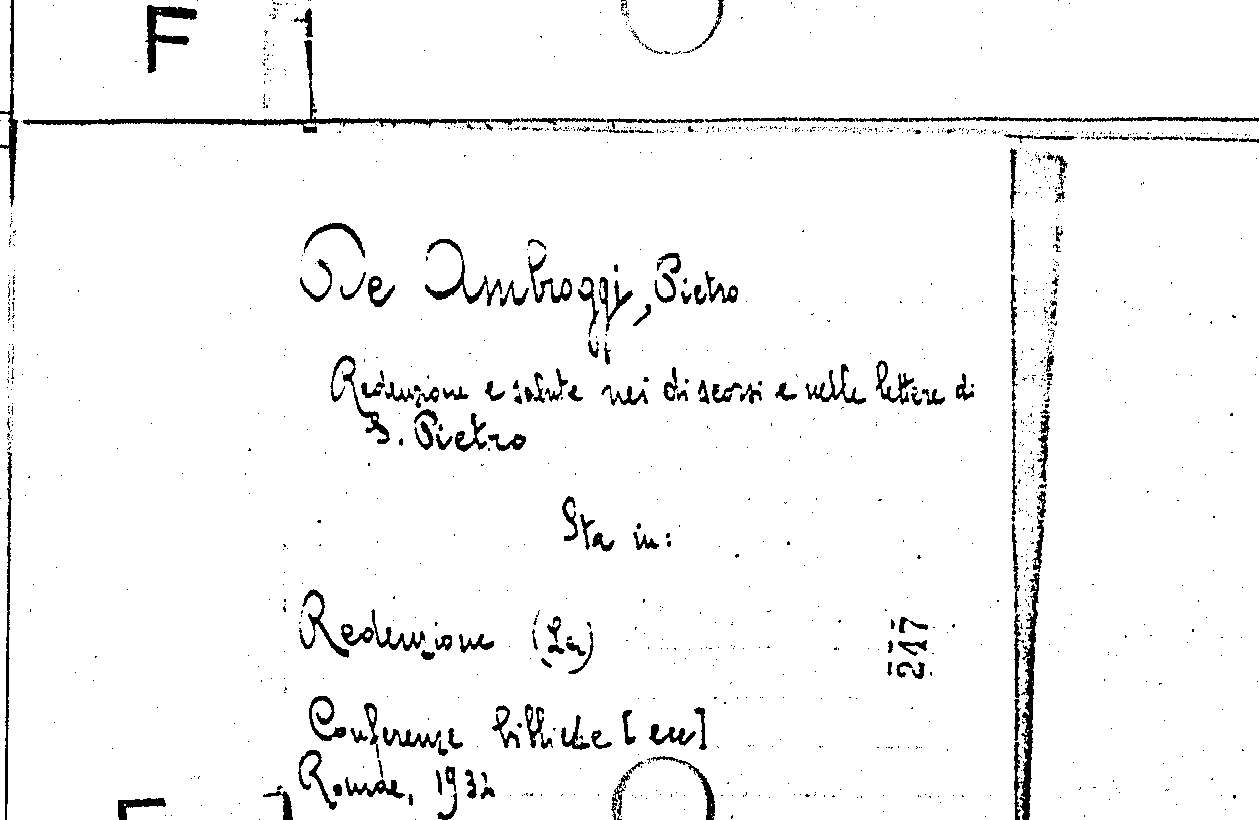 F
De Ambroggi, Pietro
Redenzione e salute nei discorsi e nelle lettere di
S. Pietro
Sta in:
Redenzione (La)
247
Conferenze bibliche [ecc]
Romae, 1934